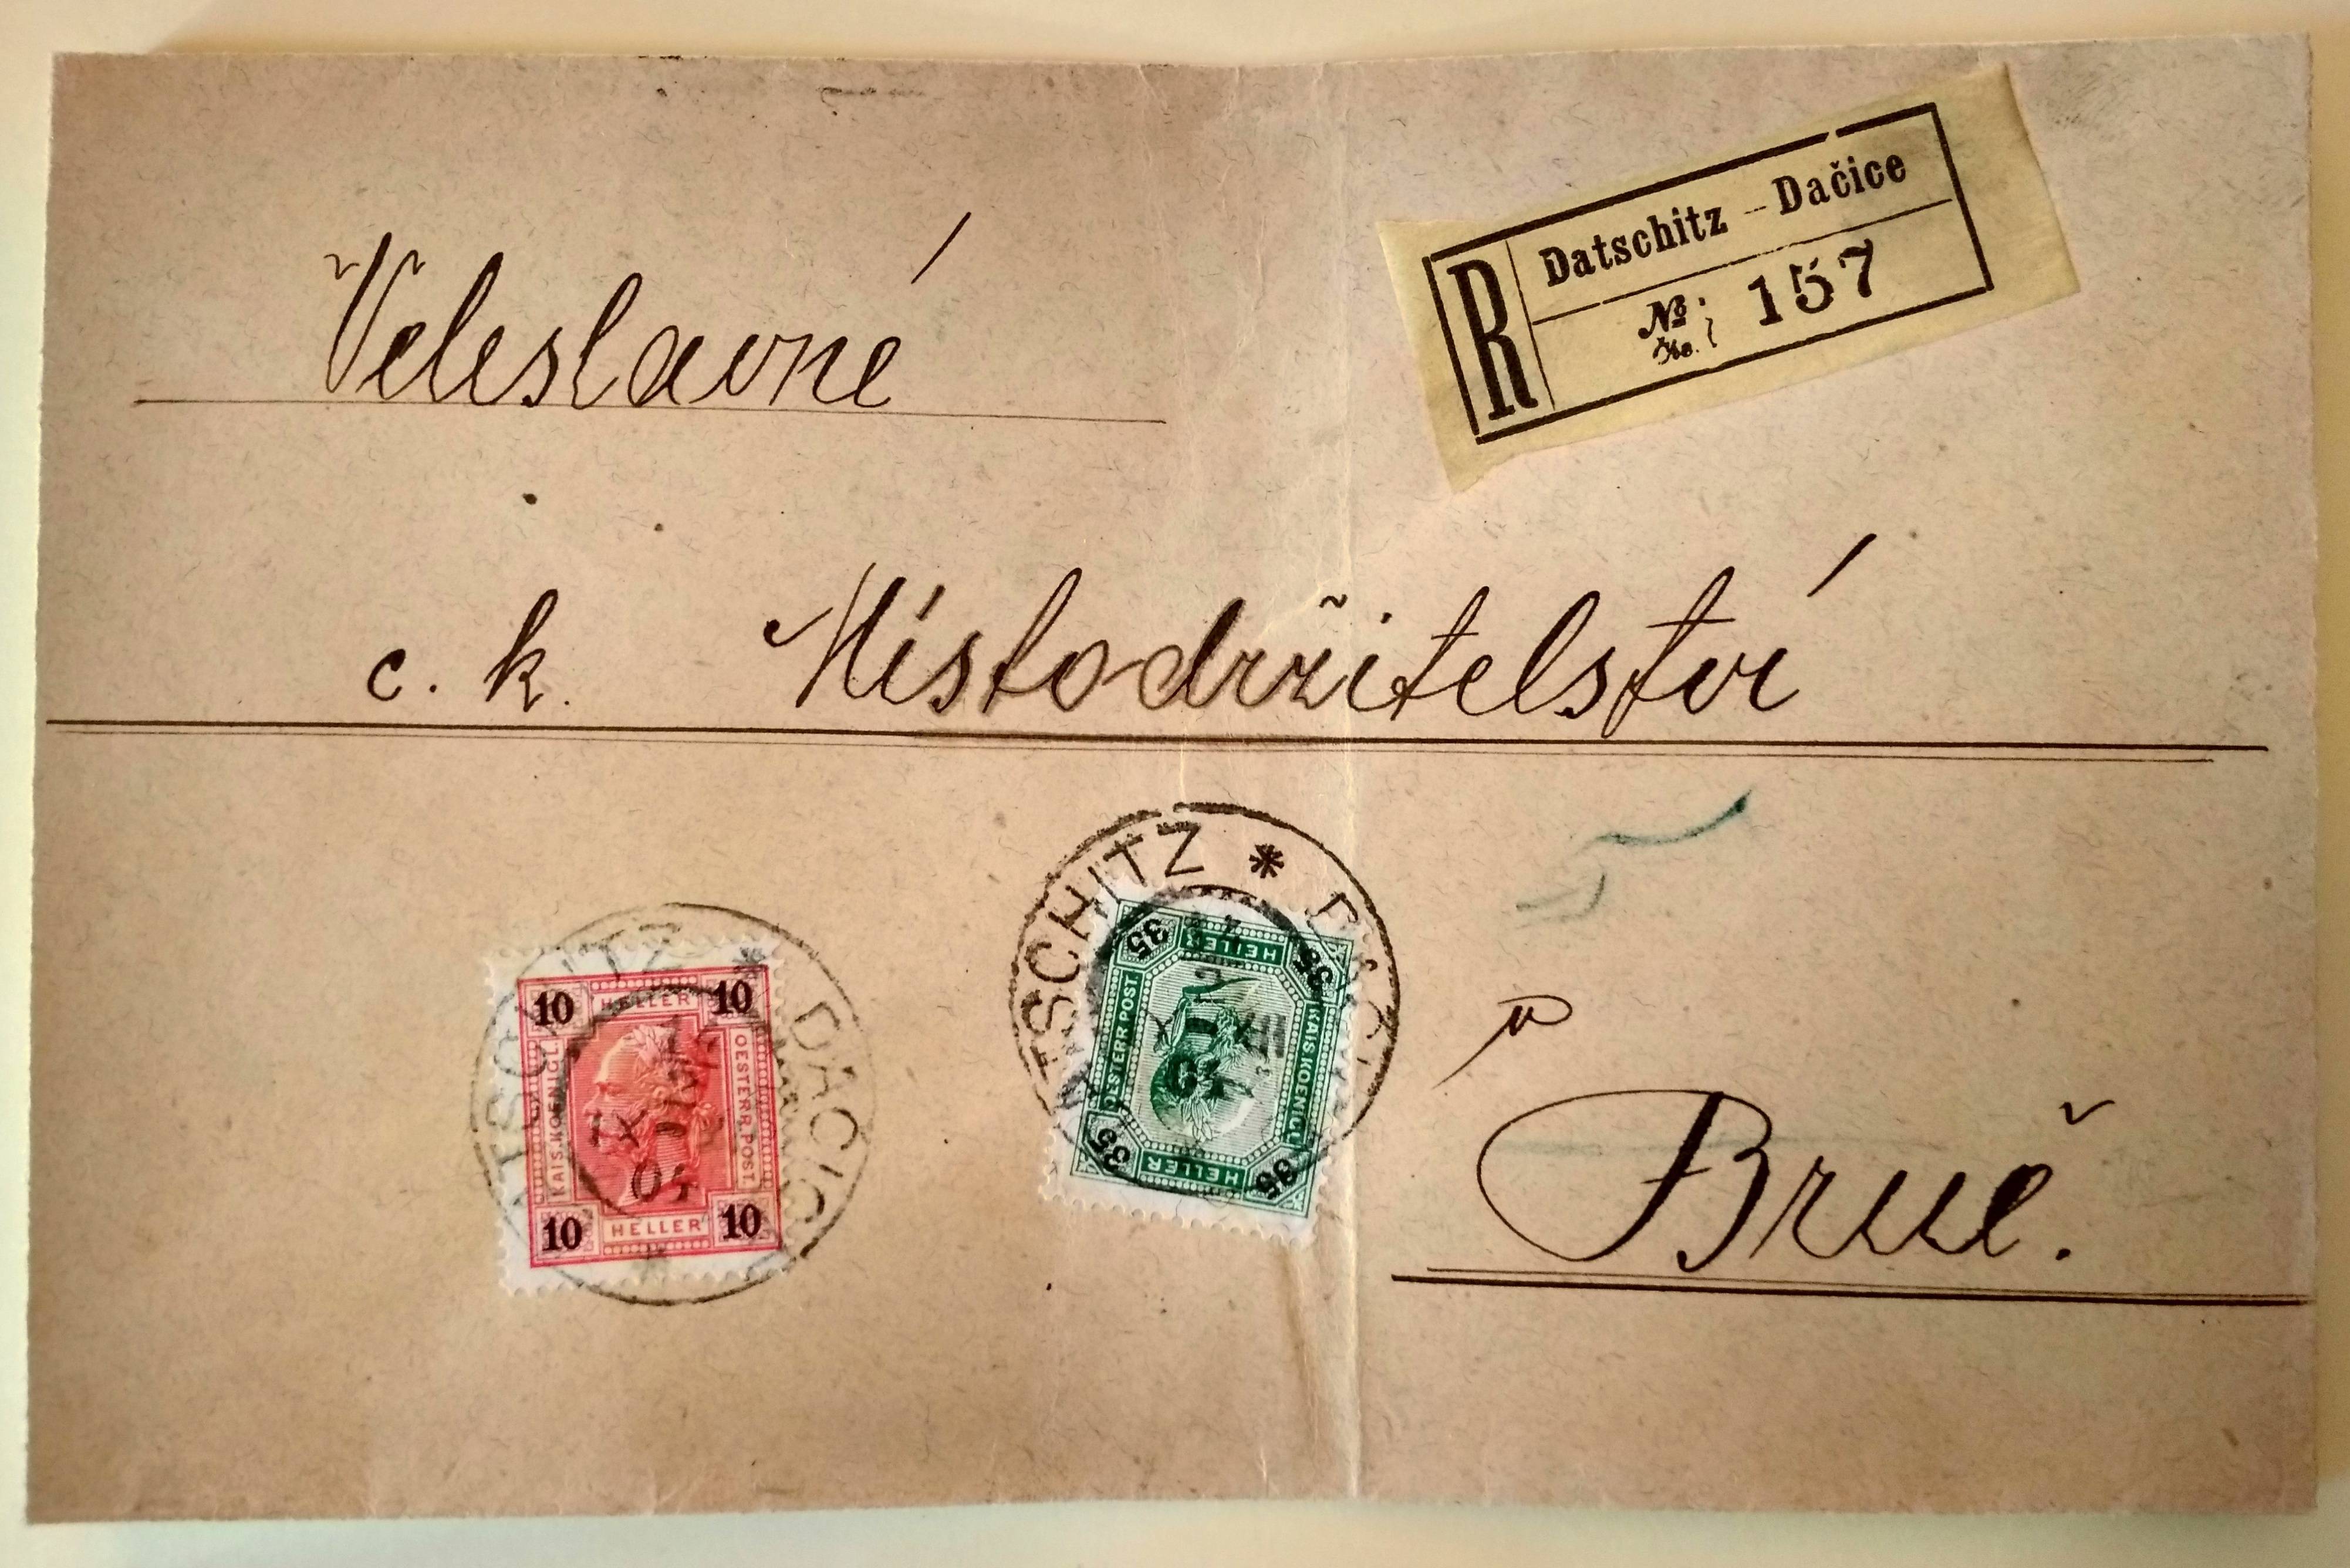 Veleslavné
R
Datschitz – Dačice
№ 157
c. k. Místodržitelství
TSCHITZ *
10 HELLER 10
KAIS. KOENIGL.
OESTERR. POST.
10 HELLER 10
DACIC
35 HELLER 35
KAIS. KOENIGL.
OESTERR. POST.
35 HELLER 35
v
Brně.